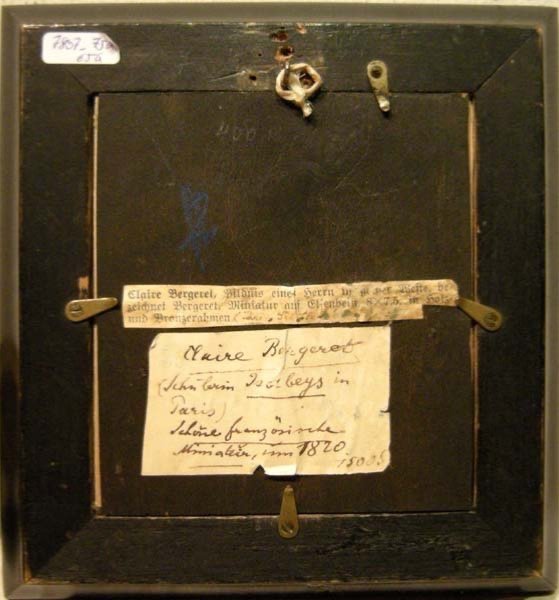 400
Claire Bergeret, Bildnis eines Herrn in Weste, be-
zeichnet Bergeret, Miniatur auf Elfenbein, 8×7,5, in Holz-
und Bronzerahmen
Claire Bergeret
(Schülerin Isabeys in
Paris)
Schöne französische
Miniatür, um 1820